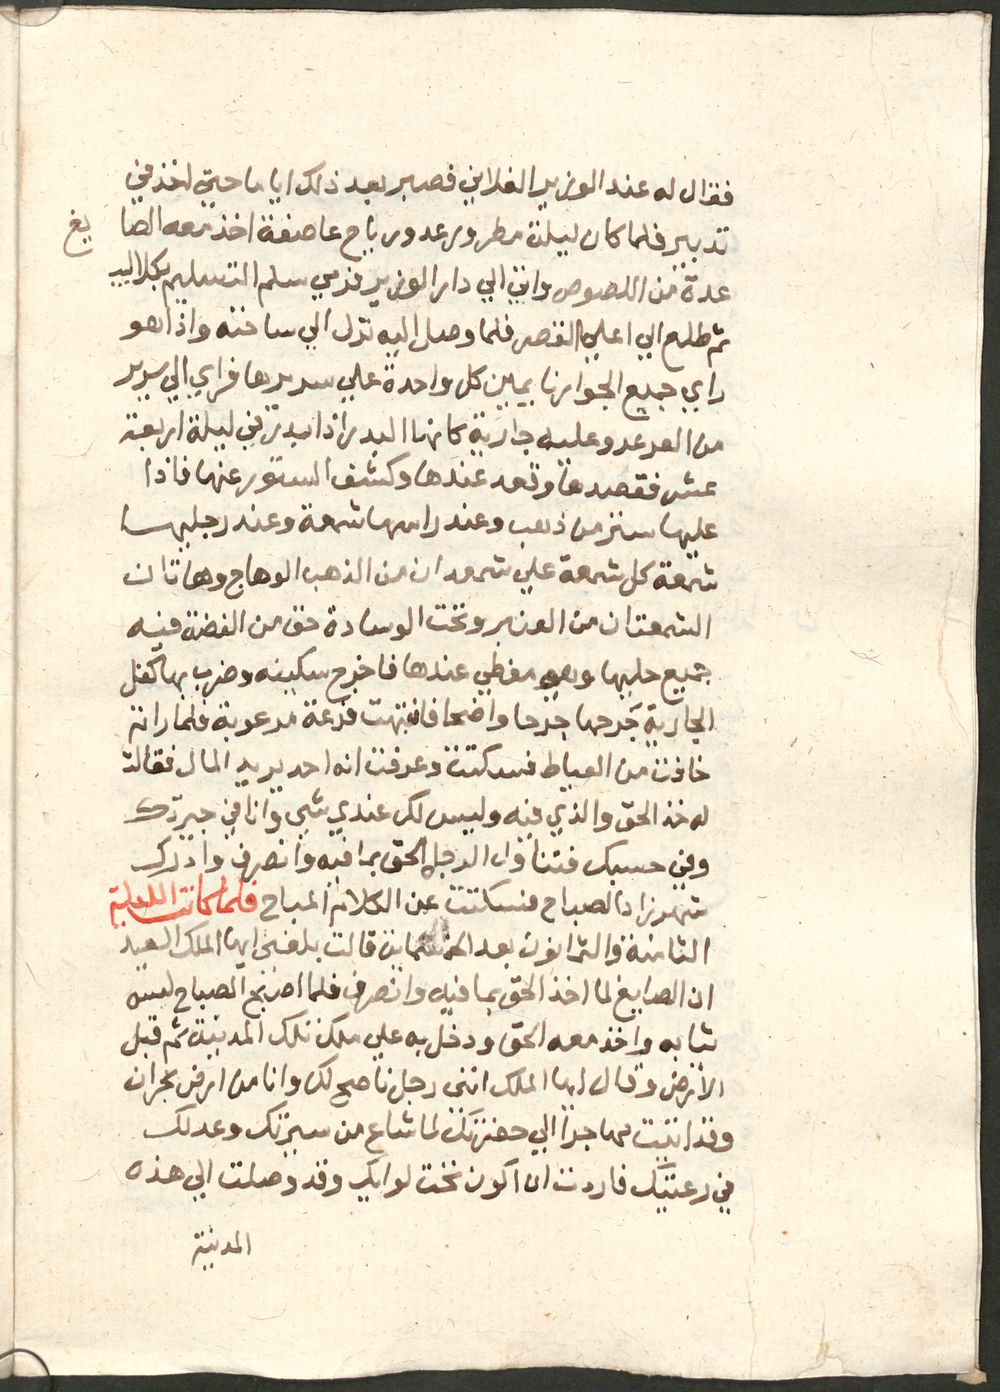 فقال له عند الوزير الفلاني فصبر بعد ذلك اياما حتي اخذ في
تدبير فلما كان ليلة مطر ورعد ورياح عاصفة اخذ معه الصا يغ
عدة من اللصوص واتي الي دار الوزير فرمي سلم التسليم بكلاليب
ثم طلع الي اعلي القصر فلما وصل اليه نزل الي ساحته واذا هو
راي جميع الجوار نايمين كل واحدة علي سريرها فراي الي سرير
من المرمر وعليه جارية كانها البدر اذا بدر في ليلة اربعة
عشر فقصدها وقعد عندها وكشف الستور عنها فاذا
عليها ستر من ذهب وعند راسها شمعة وعند رجليها
شمعة كل شمعة علي شمعدان من الذهب الوهاج وهاتان
الشمعتان من العنبر وتحت الوسادة حق من الفضة فيه
جميع حليها وهو مغطي عندها فاخرج سكينه وضرب بها كفل
الجارية جرحها جرحا واضحا فانتبهت فزعة مرعوبة فلما راته
خافت من العياط فسكتت وعرفت انه احد يريد المال فقالت
له خذ الحق والذي فيه وليس لك عندي شي وانا في جيرتك
وفي حسبك فتناول الرجل الحق بما فيه وانصرف وادرك
شهرزاد الصباح فسكتت عن الكلام المباح فلما كانت الليلة
الثامنة والثمانون بعد الخمسماية قالت بلغني ايها الملك السعيد
ان الصايغ لما اخذ الحق بما فيه وانصرف فلما اصبح الصباح لبس
ثيابه واخذ معه الحق ودخل به علي ملك تلك المدينة ثم قبل
الارض وقال ايها الملك انني رجل ناصح لك وانا من ارض نجران
وقد اتيت مهاجرا الي حضرتك لما شاع من سيرتك وعدلك
في رعيتك فاردت ان اكون تحت لوايك وقد وصلت الي هذه
المدينة